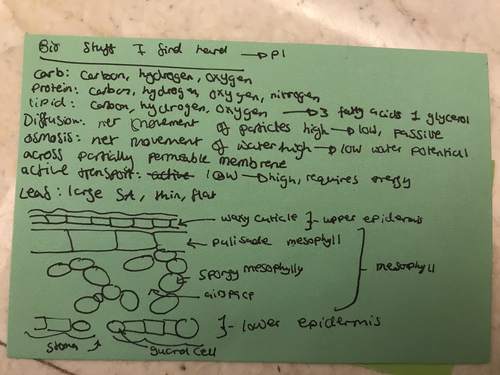 Bio Stuff I find hard → P1
carb: carbon, hydrogen, oxygen
Protein: carbon, hydrogen, oxygen, nitrogen
lipid: carbon, hydrogen, oxygen → 3 fatty acids 1 glycerol
Diffusion: net movement of particles high → low, passive
osmosis: net movement of water high → low water potential
across partially permeable membrane
active transport: active low → high, requires energy
Leaf: large SA, thin, flat
waxy cuticle }- upper epidermis
palisade mesophyll
spongy mesophylly
mesophyll
airspace
}- lower epidermis
stoma
guard cell